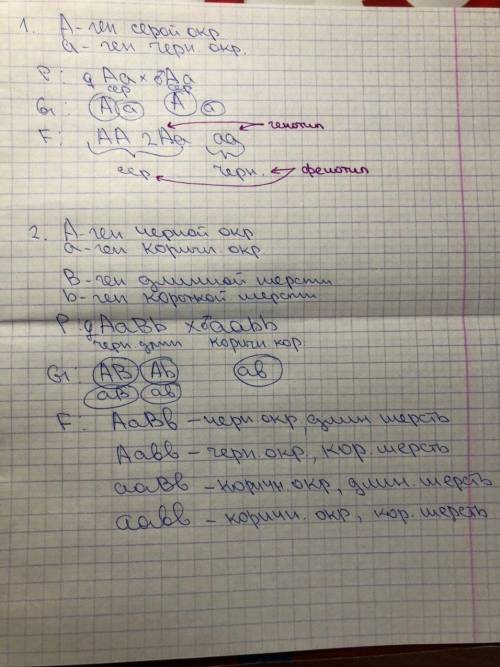 1. А-ген серой окр.
а-ген черн. окр.
Р: ♀Аа × ♂Аа
сер сер
G: А а А а
F: АА 2Аа аа генотип
сер черн. фенотип
2. А-ген черной окр
а-ген коричн. окр
В-ген длинной шерсти
b-ген короткой шерсти
Р: ♀АаВb × ♂ааbb
черн. длин коричн кор.
G: АВ Аb ав
аВ ав
F: АаВв - черн. окр, длин шерсть
Аавв - черн. окр., кор. шерсть
ааВв - коричн. окр., длин. шерсть
аавв - коричн. окр, кор. шерсть